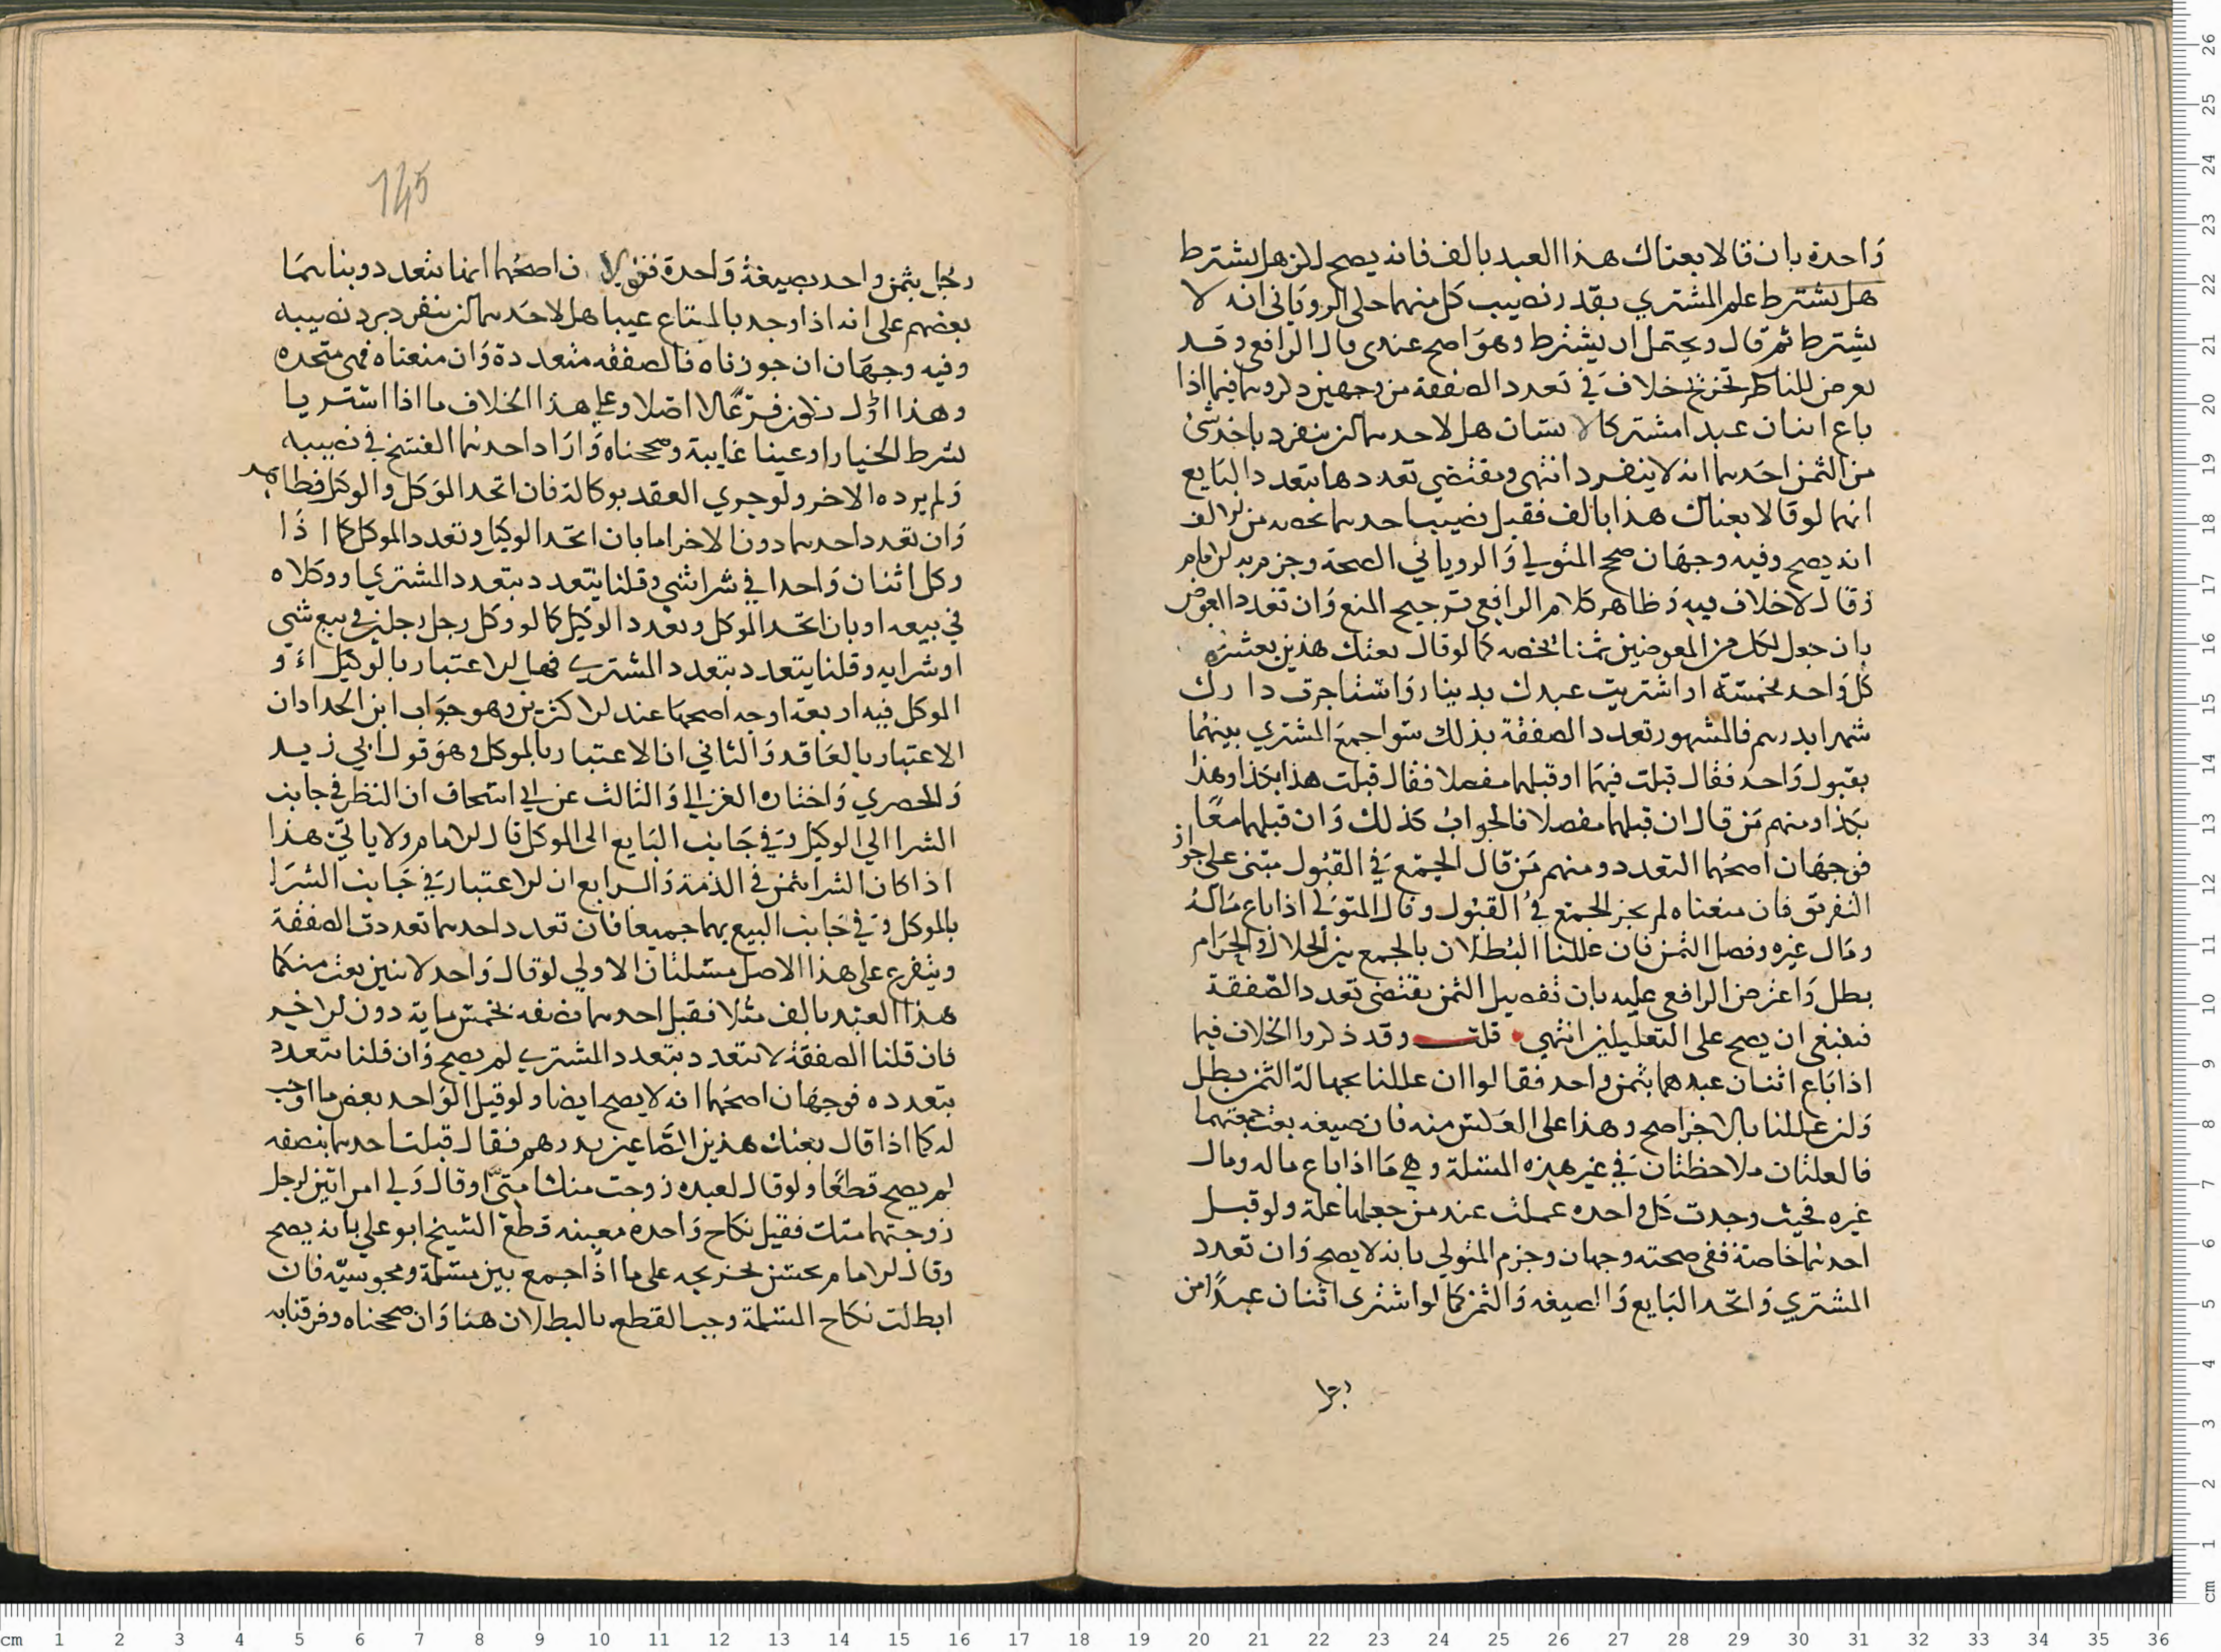 واحدة بان قالا بعناك هذا العبد بالف فانه يصح لكن هل يشترط
هل يشترط علم المشتري بقدر نصيب كل منهما حكى الروياني انه لا
يشترط ثم قال ويحتمل ان يشترط وهو اصح عندي قال الرافعي وقد
يعرض للناظر تخريج خلاف في تعدد الصفقة من وجهين ذكروهما فيما اذا
باع اثنان عبدا مشتركا لانسان هل لاحدهما ان ينفرد باخذ شئ
من الثمن احدهما انه لا ينفرد انتهى ويقتضي تعددها بتعدد البايع
انهما لو قالا بعناك هذا بالف فقبل نصيب احدهما بخصه من الالف
انه يصح وفيه وجهان صحح المتولي والروياني الصحة وجزم به الامام
وقال لا خلاف فيه وظاهر كلام الرافعي ترجيح المنع وان تعدد العوض
بان جعل لكل من المعوضين ثمنا يخصه كما لو قال بعتك هذين بعشرة
كل واحد بخمسة او اشتريت عبدك بدينار واستاجرت دارك
شهرا بدرهم فالمشهور تعدد الصفقة بذلك سوا جمع المشتري بينهما
بقبول واحد فقال قبلت فيهما او قبلهما مفصلا فقال قبلت هذا بكذا وهذا
بكذا ومنهم من قال ان قبلهما مفصلا فالجواب كذلك وان قبلهما معا
فوجهان اصحهما التعدد ومنهم من قال الجمع في القبول مبني على جواز
التفريق فان منعناه لم يجز الجمع في القبول وقال المتولي اذا باع ماله
ومال غيره وفصل الثمن فان عللنا البطلان بالجمع بين الحلال والحرام
بطل واعترض الرافعي عليه بان تفصيل الثمن يقتضي تعدد الصفقة
فينبغي ان يصح على التعليلين انتهى قلت وقد ذكروا الخلاف فيما
اذا باع اثنان عبدهما بثمن واحد فقالوا ان عللنا بجهالة الثمن بطل
وان عللنا بالاخر صح وهذا على العكس منه فان صيغه بعت جمعتهما
فالعلتان ملاحظتان في غير هذه المسئلة وهي ما اذا باع ماله ومال
غيره فحيث وجدت كل واحده عملت عند من جعلها علة ولو قبل
احدهما خاصة ففي صحته وجهان وجزم المتولي بانه لا يصح وان تعدد
المشتري واتحد البايع والصيغه والثمن كما لو اشترى اثنان عبدا من
رجل
145
رجل بثمن واحد بصيغة واحدة فقولان اصحهما انها تتعدد وبناهما
بعضهم على انه اذا وجد بالمبتاع عيبا هل لاحدهما ان ينفرد برد نصيبه
وفيه وجهان ان جوزناه فالصفقه متعددة وان منعناه فهي متحده
وهذا اول فرعا لا اصلا وعلى هذا الخلاف ما اذا اشتريا
بشرط الخيار او عينا غايبة وصححناه واراد احدهما الفسخ في نصيبه
ولم يرده الاخر ولو جري العقد بوكالة فان اتحد الموكل والوكيل فظاهر
وان تعدد احدهما دون الاخر اما بان اتحد الوكيل وتعدد الموكل كما اذا
وكل اثنان واحدا في شراشي وقلنا يتعدد بتعدد المشتري او وكلاه
في بيعه او بان اتحد الموكل وتعدد الوكيل كما لو وكل رجل رجلين في بيع شي
او شرايه وقلنا يتعدد بتعدد المشتري فهل الاعتبار بالوكيل او
الموكل فيه اربعة اوجه اصحها عند الاكثرين وهو جواب ابن الحداد ان
الاعتبار بالعاقد والثاني ان الاعتبار بالموكل وهو قول ابي زيد
والحصري واختاره الغزالي والثالث عن ابي اسحاق ان النظر في جانب
الشرا الي الوكيل وفي جانب البايع الى الموكل قال الامام ولا ياتي هذا
اذا كان الشرا بثمن في الذمة والرابع ان الاعتبار في جانب الشرا
بالموكل وفي جانب البيع بهما جميعا فان تعدد احدهما تعددت الصفقة
ويتفرع على هذا الاصل مسئلتان الاولي لو قال واحد لاثنين بعت منكما
هذا العبد بالف مثلا فقبل احدهما نصفه بخمس ماية دون الاخر
فان قلنا الصفقة لا تتعدد بتعدد المشتري لم يصح وان قلنا تتعدد
بتعدده فوجهان اصحهما انه لا يصح ايضا ولو قبل الواحد بعض ما اوجب
له كما اذا قال بعتك هذين الصاعين بدرهم فقال قبلت احدهما بنصفه
لم يصح قطعا ولو قال لعبده زوجت منك ابنتي او قال ولي امراتين لرجل
زوجتهما منك فقبل نكاح واحدة معينه قطع الشيخ ابو علي بانه يصح
وقال الامام يحسن تخريجه على ما اذا جمع بين مسلمة ومجوسية فان
ابطلت نكاح المسلمة وجب القطع بالبطلان هنا وان صححناه وفرقنا به